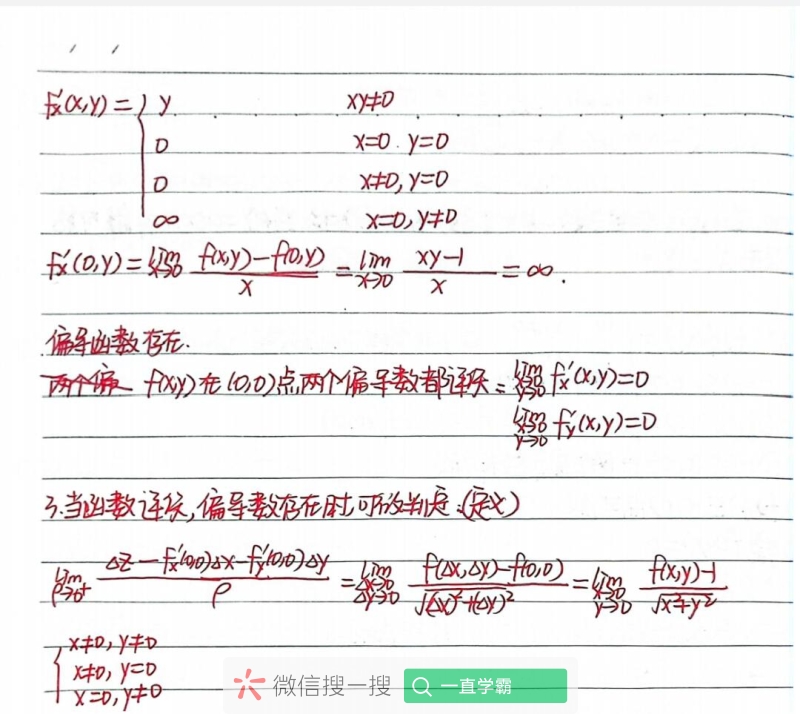 f'x(x,y) = { y    xy≠0
0    x=0. y=0
0    x≠0, y=0
∞    x=0, y≠0
f'x(0,y) = lim x→0 (f(x,y)-f(0,y))/x = lim x→0 (xy-1)/x = ∞.
偏导函数存在.
两个偏 f(x,y)在(0,0)点两个偏导数都连续 = lim x→0 y→0 f'x(x,y)=0
lim x→0 y→0 f'y(x,y)=0
3.当函数连续,偏导数存在时,可微判定:(定义)
lim ρ→0+ (Δz-f'x(0,0)Δx-f'y(0,0)Δy)/ρ = lim Δx→0 Δy→0 (f(Δx,Δy)-f(0,0))/√((Δx)²+(Δy)²) = lim x→0 y→0 (f(x,y)-1)/√(x²+y²)
{ x≠0, y≠0
x≠0, y=0
x=0, y≠0
微信搜一搜 一直学霸